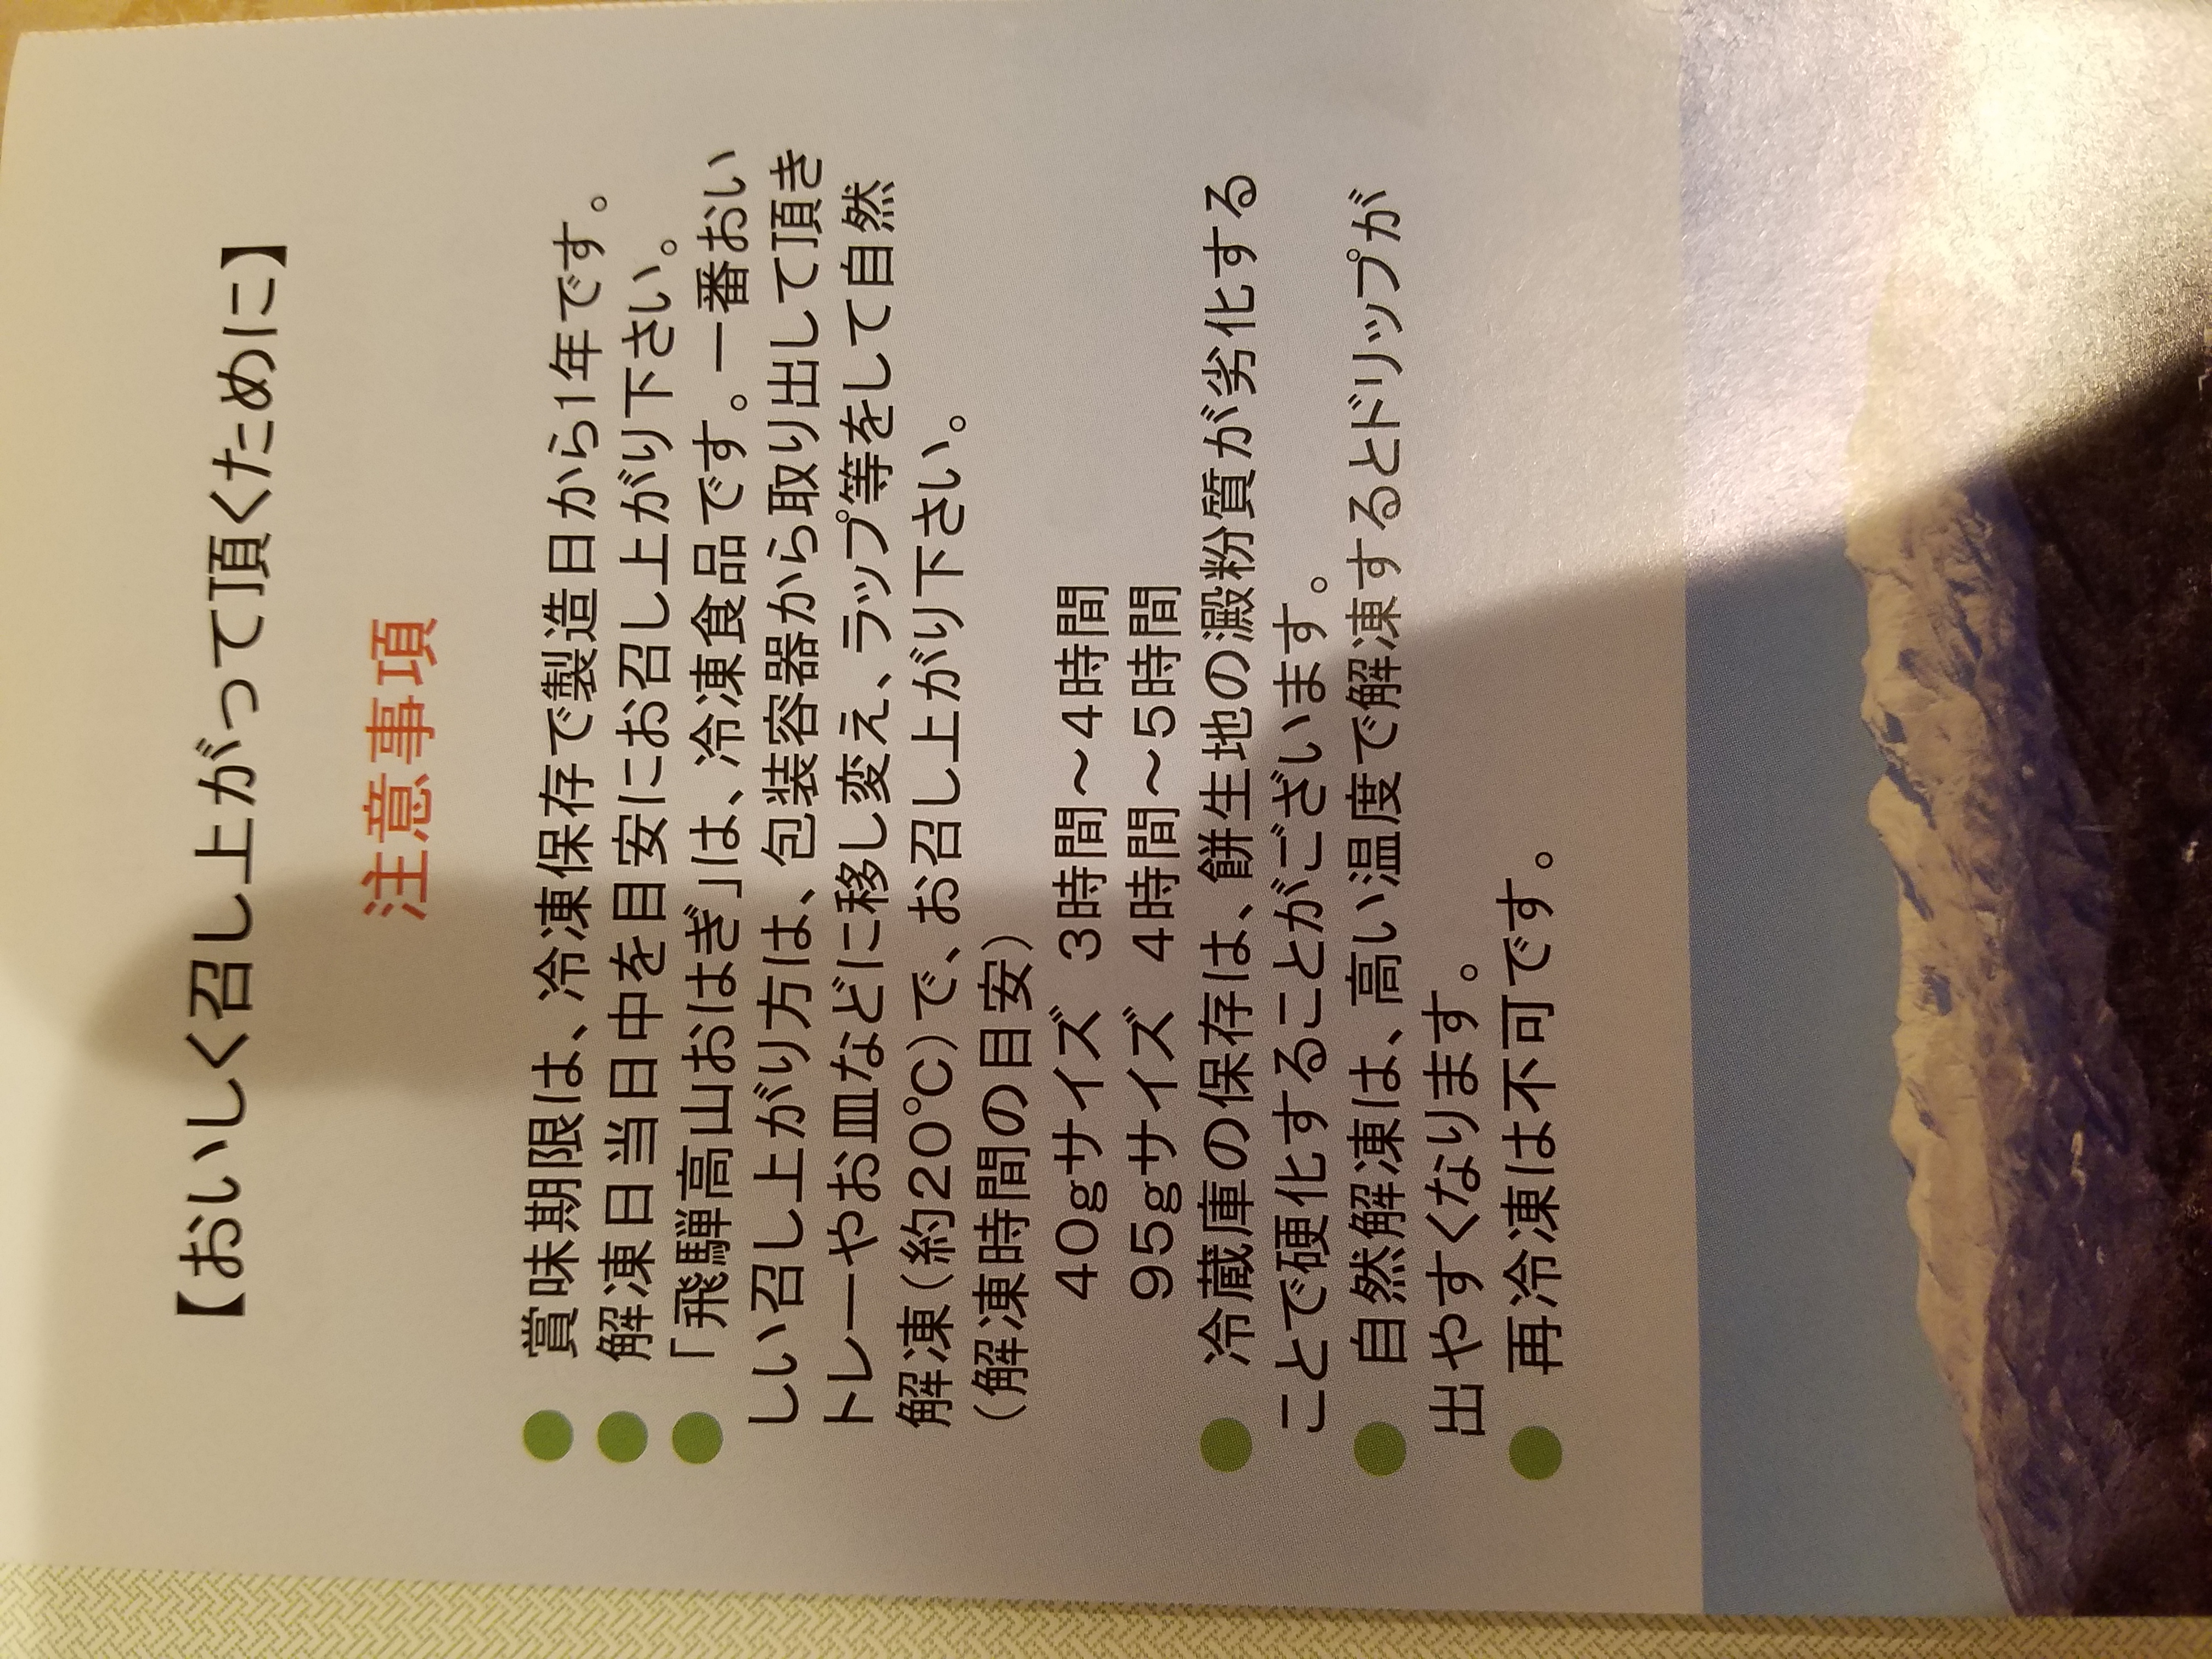 【おいしく召し上がって頂くために】
注意事項
● 賞味期限は、冷凍保存で製造日から1年です。
● 解凍日当日中を目安にお召し上がり下さい。
● 「飛騨高山おはぎ」は、冷凍食品です。一番おい
しい召し上がり方は、包装容器から取り出して頂き
トレーやお皿などに移し変え、ラップ等をして自然
解凍(約20℃)で、お召し上がり下さい。
(解凍時間の目安)
40gサイズ 3時間〜4時間
95gサイズ 4時間〜5時間
● 冷蔵庫の保存は、餅生地の澱粉質が劣化する
ことで硬化することがございます。
● 自然解凍は、高い温度で解凍するとドリップが
出やすくなります。
● 再冷凍は不可です。